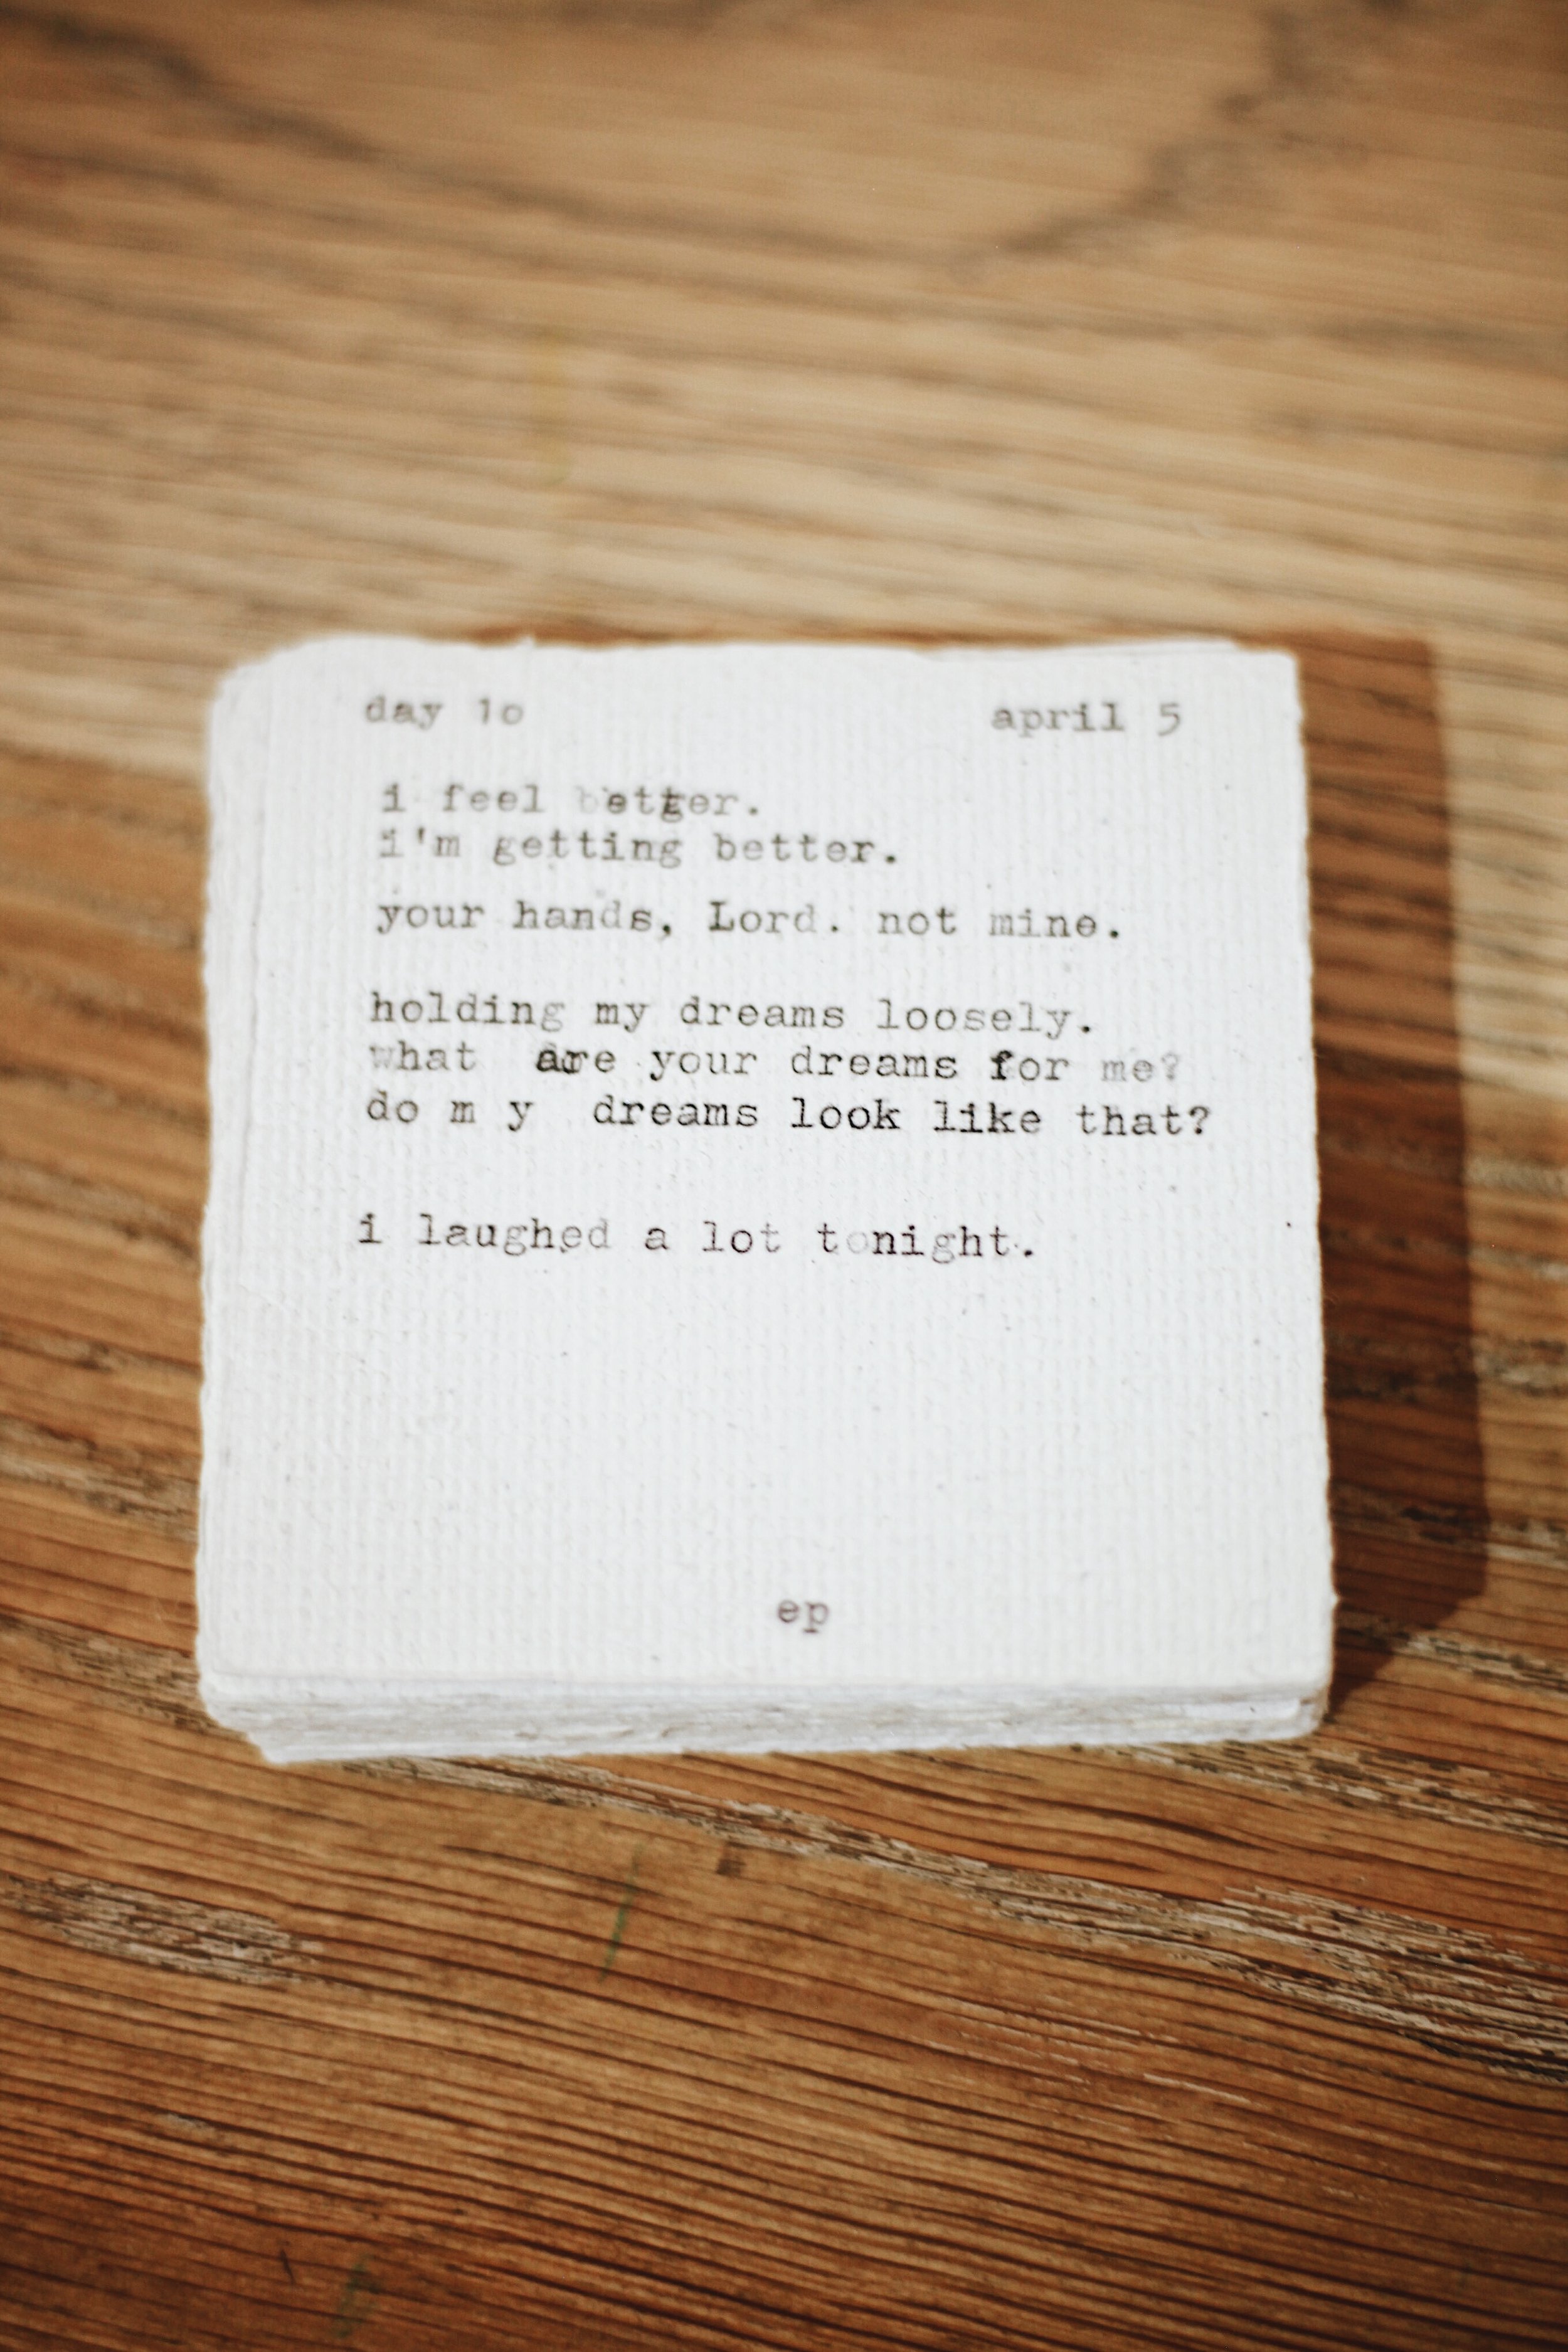 day 10 april 5
i feel better.
i'm getting better.
your hands, Lord. not mine.
holding my dreams loosely.
what are your dreams for me?
do m y dreams look like that?
i laughed a lot tonight.
ep